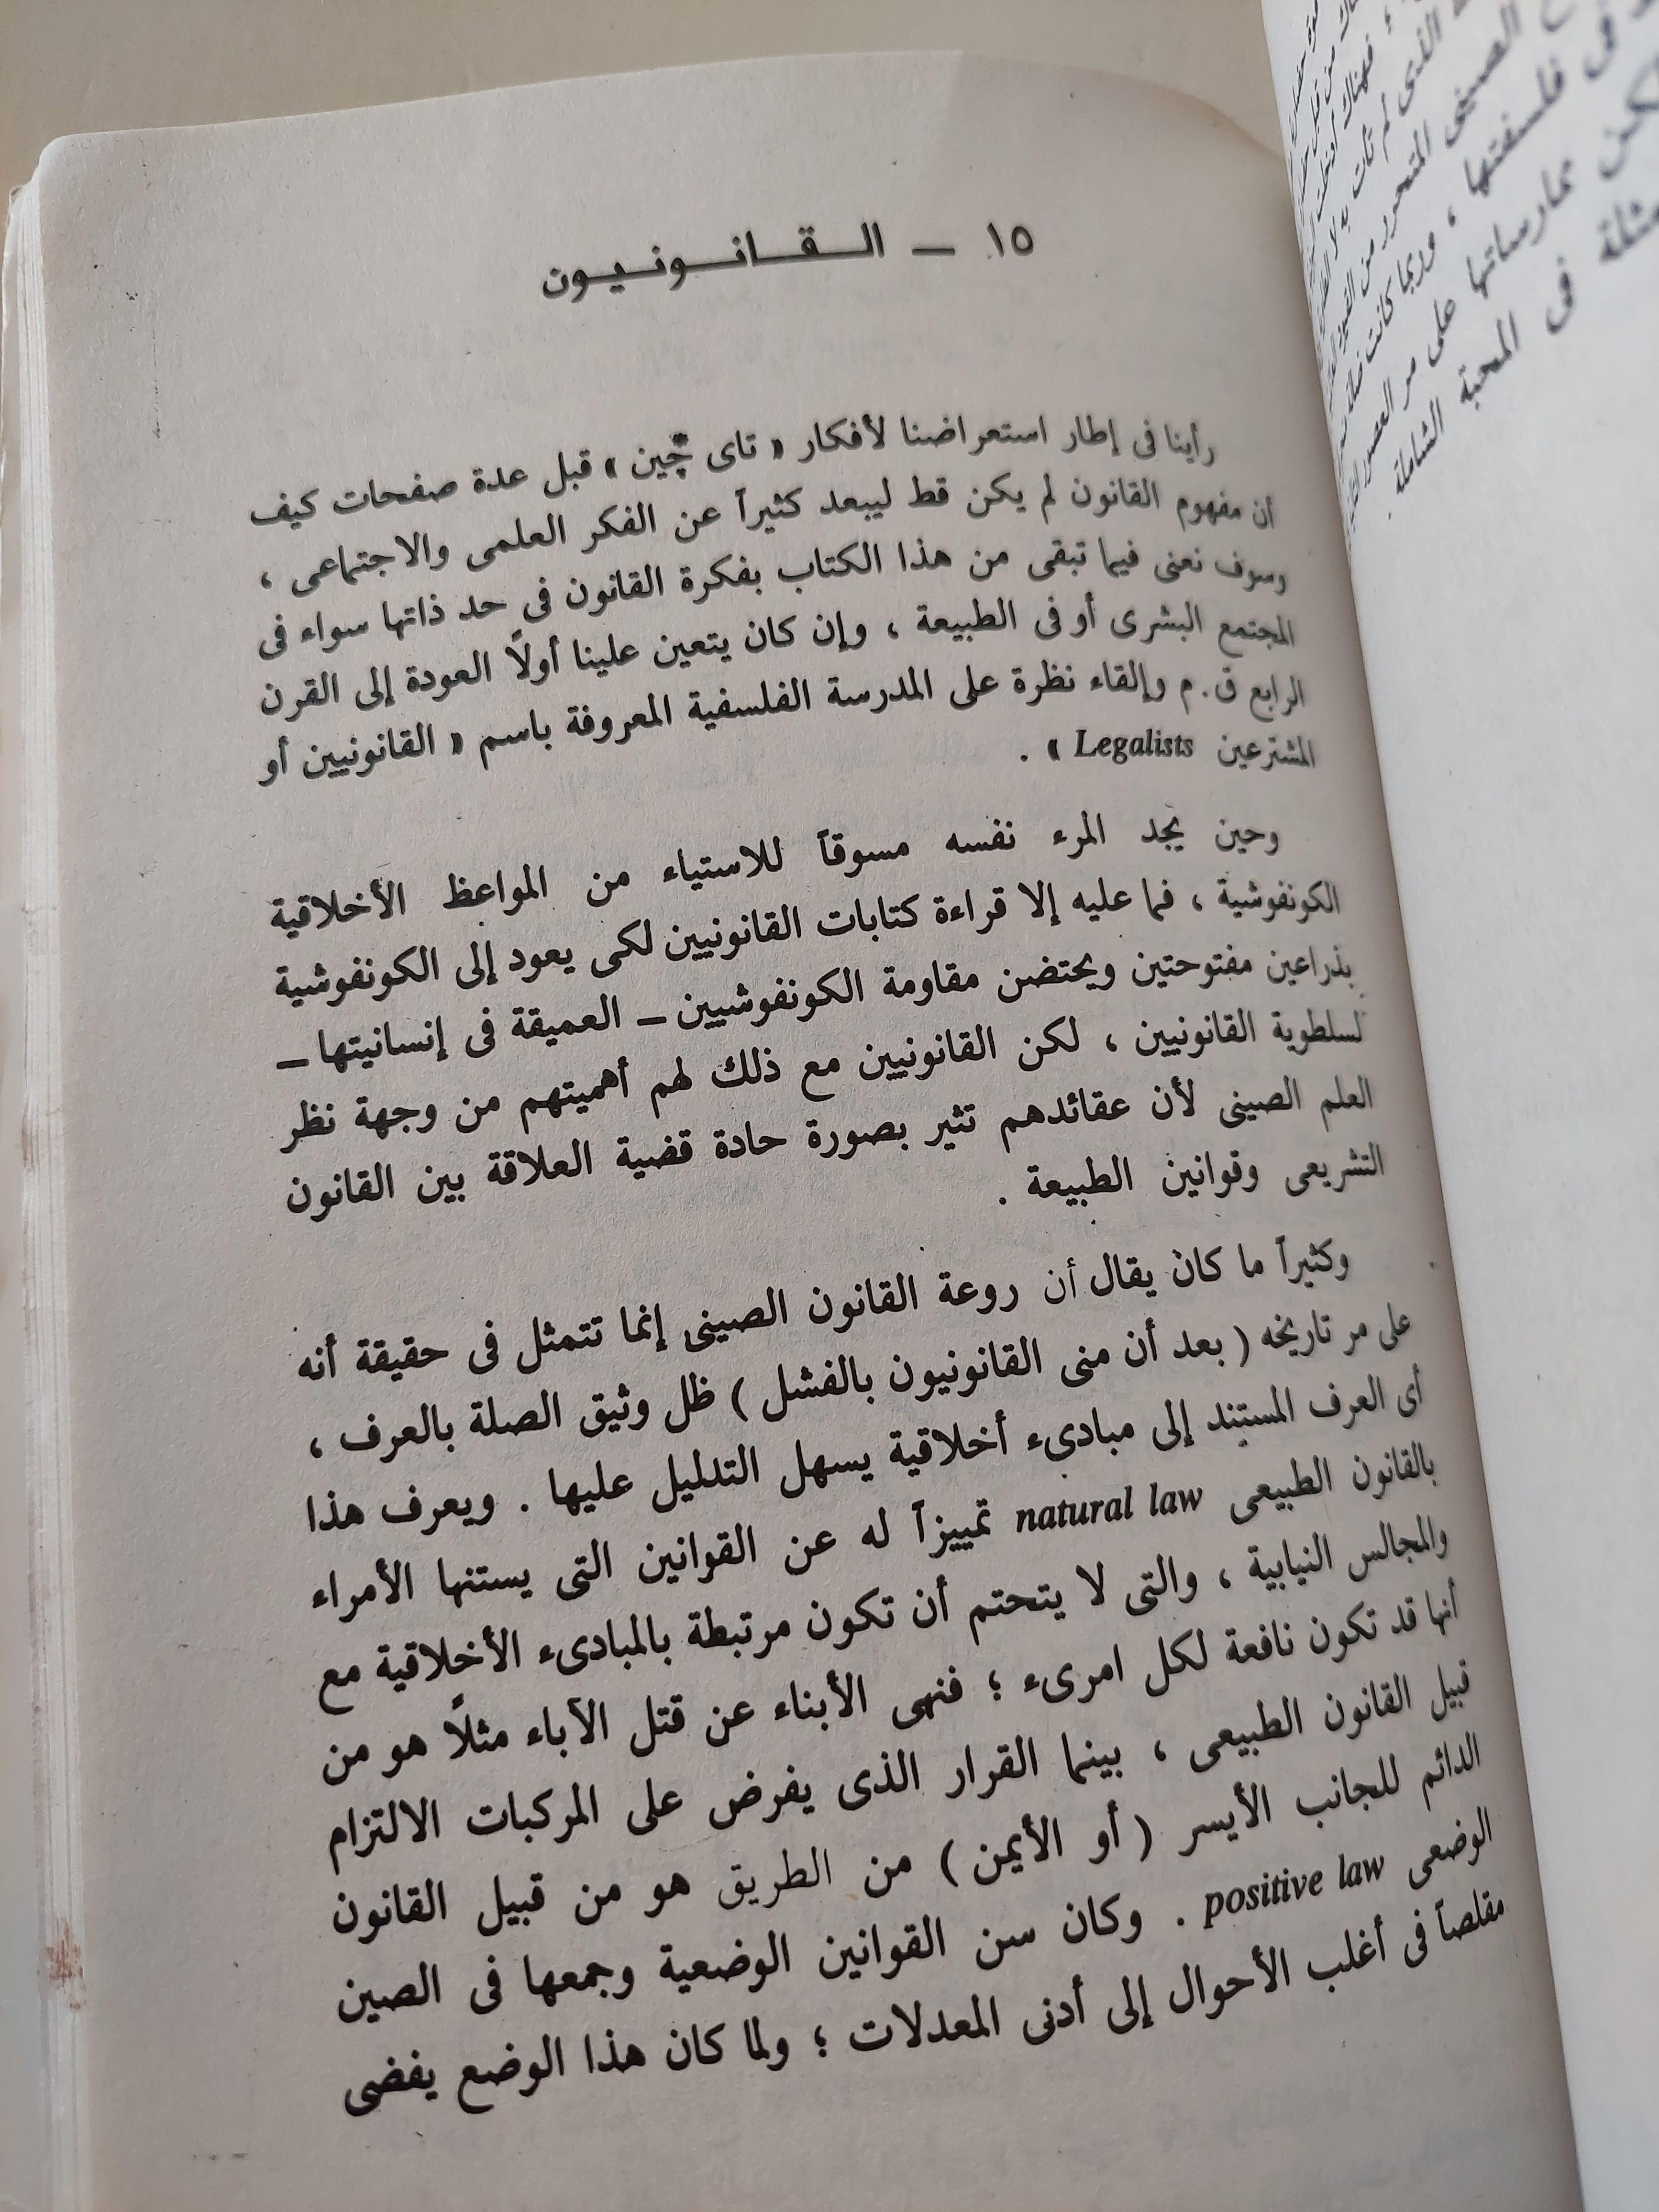 ١٥ ــ القانونيون
رأينا فى إطار استعراضنا لأفكار « تاى چين » قبل عدة صفحات كيف
أن مفهوم القانون لم يكن قط ليبعد كثيراً عن الفكر العلمى والاجتماعى ،
وسوف نعنى فيما تبقى من هذا الكتاب بفكرة القانون فى حد ذاتها سواء فى
المجتمع البشرى أو فى الطبيعة ، وإن كان يتعين علينا أولاً العودة إلى القرن
الرابع ق . م وإلقاء نظرة على المدرسة الفلسفية المعروفة باسم « القانونيين أو
المشترعين Legalists » .
وحين يجد المرء نفسه مسوقاً للاستياء من المواعظ الأخلاقية
الكونفوشية ، فما عليه إلا قراءة كتابات القانونيين لكى يعود إلى الكونفوشية
بذراعين مفتوحتين ويحتضن مقاومة الكونفوشيين ــ العميقة فى إنسانيتها ــ
لسلطوية القانونيين ، لكن القانونيين مع ذلك لهم أهميتهم من وجهة نظر
العلم الصينى لأن عقائدهم تثير بصورة حادة قضية العلاقة بين القانون
التشريعى وقوانين الطبيعة .
وكثيراً ما كان يقال أن روعة القانون الصينى إنما تتمثل فى حقيقة أنه
على مر تاريخه ( بعد أن منى القانونيون بالفشل ) ظل وثيق الصلة بالعرف ،
أى العرف المستند إلى مبادىء أخلاقية يسهل التدليل عليها . ويعرف هذا
بالقانون الطبيعى natural law تمييزاً له عن القوانين التى يستنها الأمراء
والمجالس النيابية ، والتى لا يتحتم أن تكون مرتبطة بالمبادىء الأخلاقية مع
أنها قد تكون نافعة لكل امرىء ؛ فنهى الأبناء عن قتل الآباء مثلاً هو من
قبيل القانون الطبيعى ، بينما القرار الذى يفرض على المركبات الالتزام
الدائم للجانب الأيسر ( أو الأيمن ) من الطريق هو من قبيل القانون
الوضعى positive law . وكان سن القوانين الوضعية وجمعها فى الصين
مقلصاً فى أغلب الأحوال إلى أدنى المعدلات ؛ ولما كان هذا الوضع يفضى
فلسفتها ، وربما كانت
ممارساتها على مر العصور
فى المحبة الشاملة .